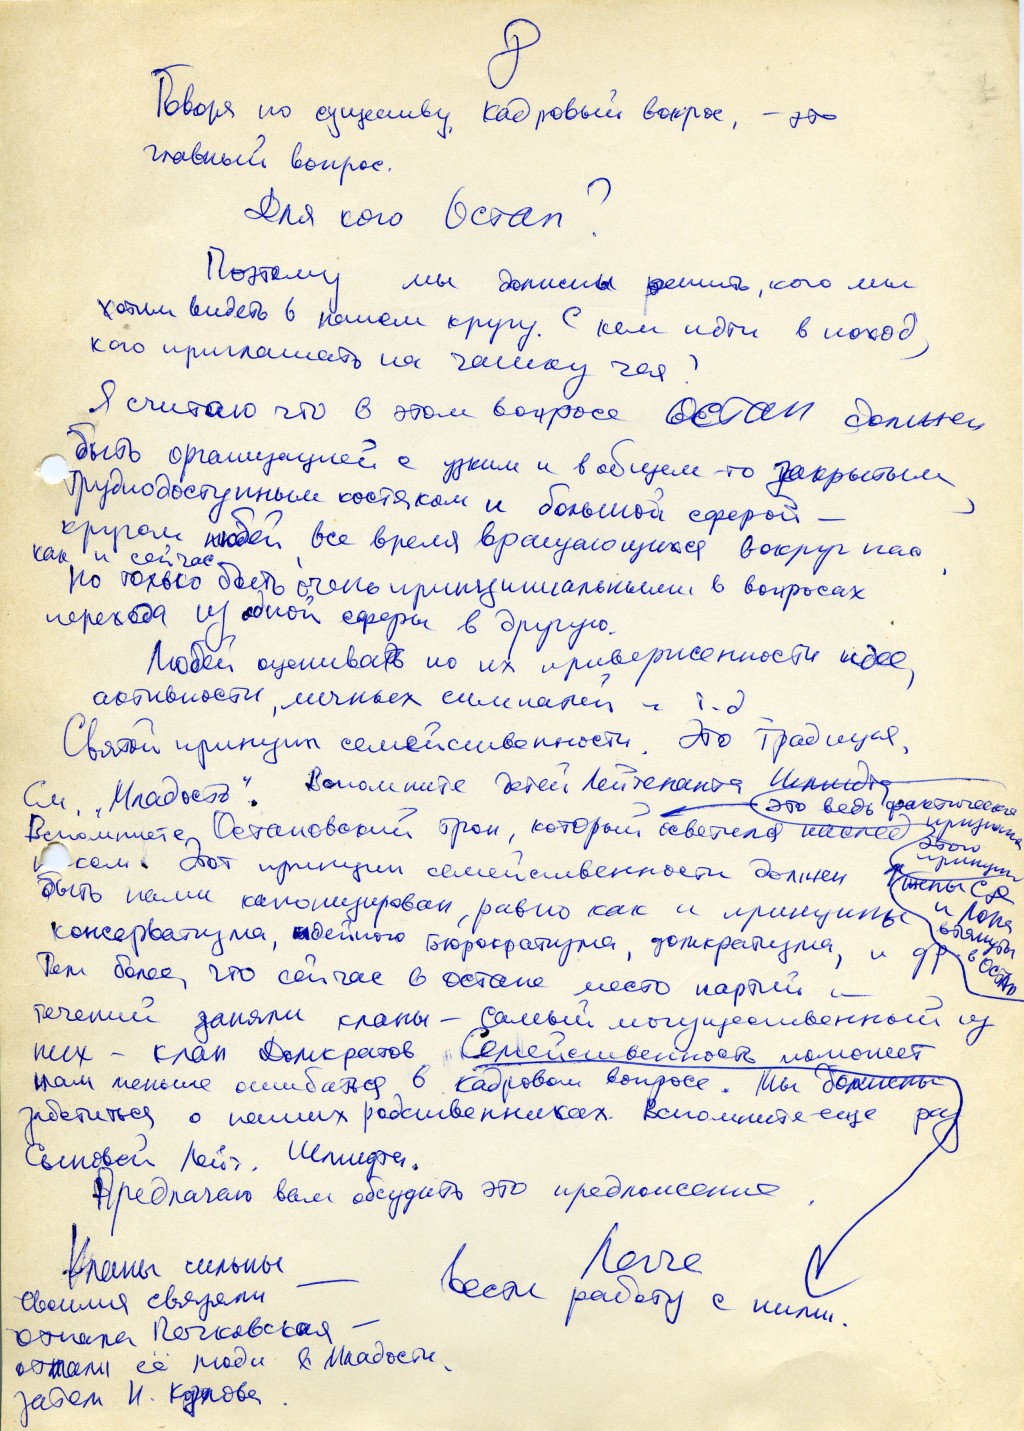 8
Говоря по существу, кадровый вопрос, – это
главный вопрос.
Для кого Остап?
Поэтому мы должны решить, кого мы
хотим видеть в нашем кругу. С кем идти в поход,
кого приглашать на чашку чая?
Я считаю что в этом вопросе ОСТАП должен
быть организацией с узким и в общем-то закрытым,
труднодоступным костяком и большой сферой –
кругом людей, все время вращающихся вокруг нас,
как и сейчас
но только быть очень принципиальными в вопросах
перехода из одной сферы в другую.
Людей оценивать по их приверженности идее,
активности, личных симпатий и т.д
Святой принцип семейственности. Это традиция.
См. „Младость". Вспомните детей Лейтенанта Шмидта
это ведь фактически
признана
этого
принципа
Вспомните, Остаповский трон, который
Этот принцип семейственности должен
СДД
и Лора
в Остап
быть нами канонизирован, равно как и принципы
консерватизма, идейного бюрократизма, домкратизма, и др
Тем более, что сейчас в остапе место партий и
течений заняли кланы – самый могущественный из
них – клан Домкратов. Семейственность поможет
нам меньше ошибаться в кадровом вопросе. Мы должны
заботиться о наших родственниках. Вспомните еще раз
Сыновей Лейт. Шмидта.
Предлагаю вам обсудить это предложение.
Кланы сильны —
своими связями
вести работу с ними.
Почковская –
её люди в Младости,
затем Н.